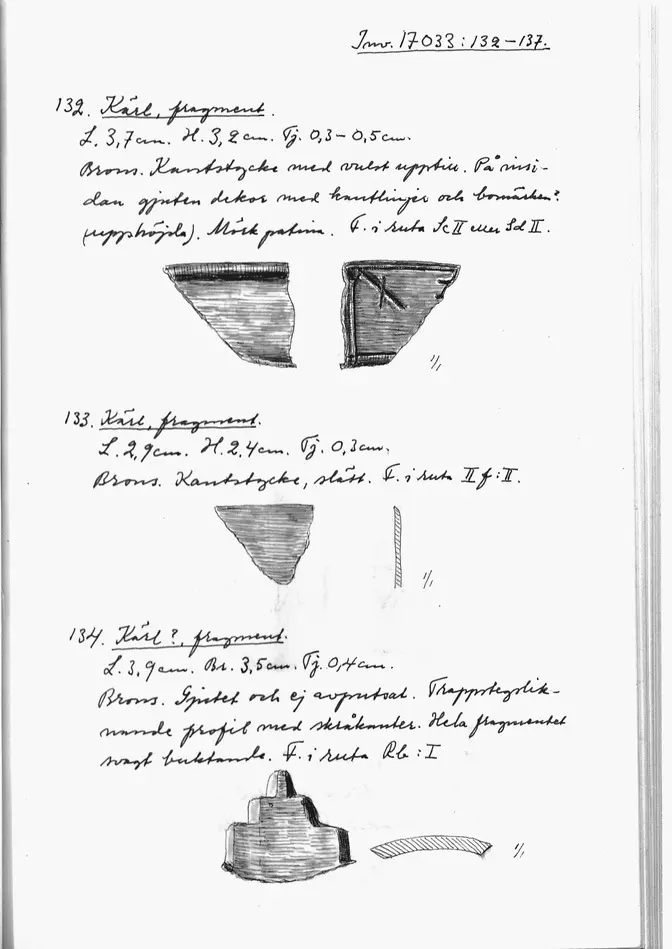 Inv. 17033:132–137.
132. Kärl, fragment.
L. 3,7cm. H. 3,2cm. Tj. 0,3–0,5cm.
Brons. Kantstycke med vulst upptill. På insi-
dan gjuten dekor med kantlinjer och bomärken?
(upphöjda). Mörk patina. F. i ruta Sc II eller Sd II.
1/1
133. Kärl, fragment.
L. 2,9cm. H. 2,4cm. Tj. 0,3cm.
Brons. Kantstycke, slätt. F. i ruta II f:II.
1/1
134. Kärl?, fragment.
L. 3,9cm. Br. 3,5cm. Tj. 0,4cm.
Brons. Gjutet och ej avputsat. Trappstegslik-
nande profil med skråkanter. Hela fragmentet
svagt buktande. F. i ruta Rb:I
1/1